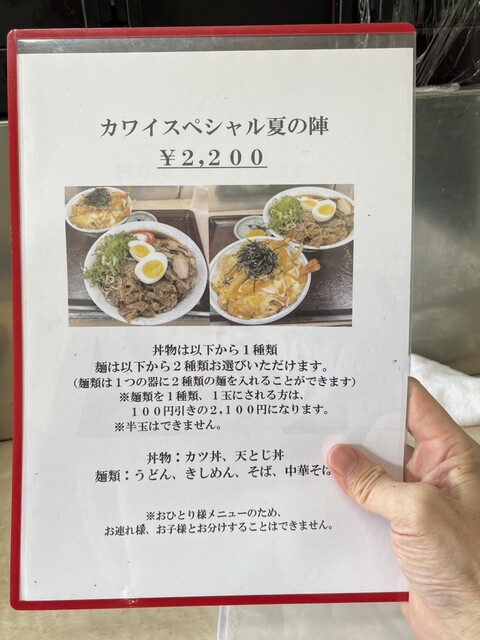 カワイスペシャル夏の陣
￥2,200
丼物は以下から1種類
麺は以下から2種類お選びいただけます。
(麺類は1つの器に2種類の麺を入れることができます)
※麺類を1種類、1玉にされる方は、
100円引きの2,100円になります。
※半玉はできません。
丼物：カツ丼、天とじ丼
麺類：うどん、きしめん、そば、中華そば
※おひとり様メニューのため、
お連れ様、お子様とお分けすることはできません。